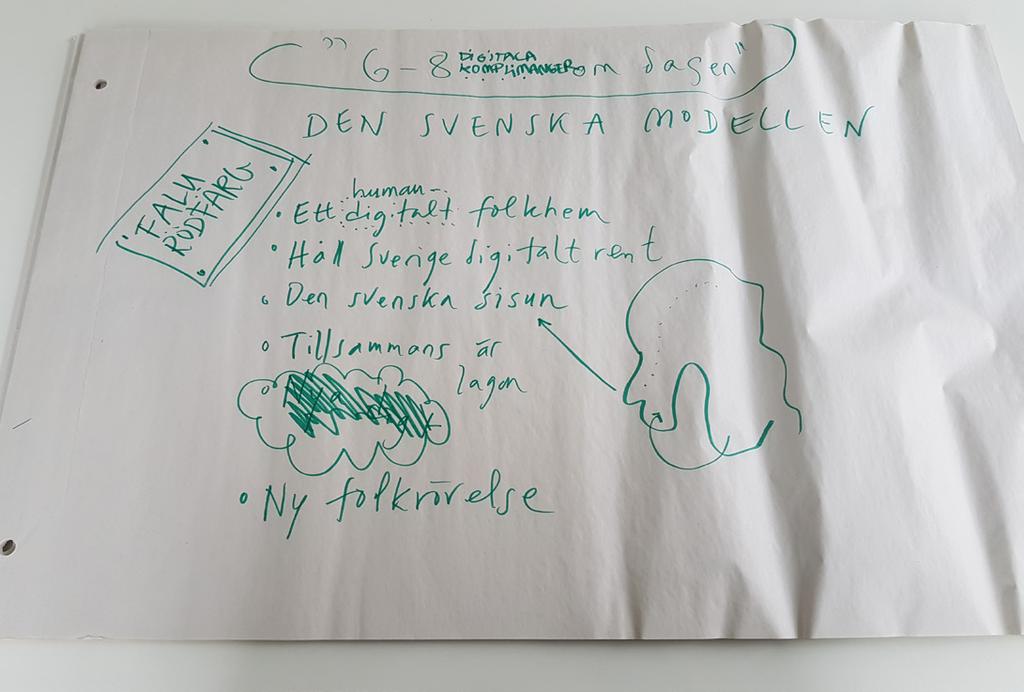 "6-8 DIGITALA KOMPLIMANGER om dagen"
DEN SVENSKA MODELLEN
FALU
RÖDFÄRG
human-
• Ett digitalt folkhem
• Håll Sverige digitalt rent
• Den svenska sisun
• Tillsammans är
lagom
• Ny folkrörelse